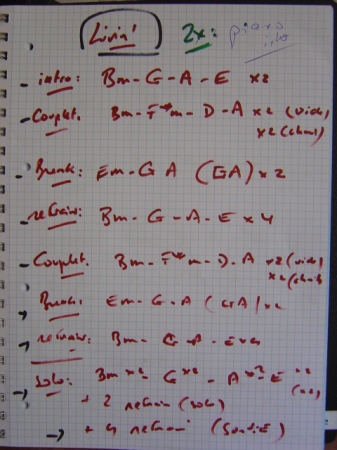 Livin' 2x: piano
intro: Bm - G - A - E x2
Couplet: Bm - F#m - D - A x2 (vide)
x2 (chant)
Break: Em - G A (GA) x2
refrain: Bm - G - A - E x4
Couplet: Bm - F#m - D - A x2 (vide)
x2 (chant)
Break: Em - G - A (GA) x2
refrain: Bm - G - A - E x4
Solo: Bm x2 - G x2 - A x2 - E x2
(x2)
+ 2 refrain (solo)
+ 4 refrain (Sortie)